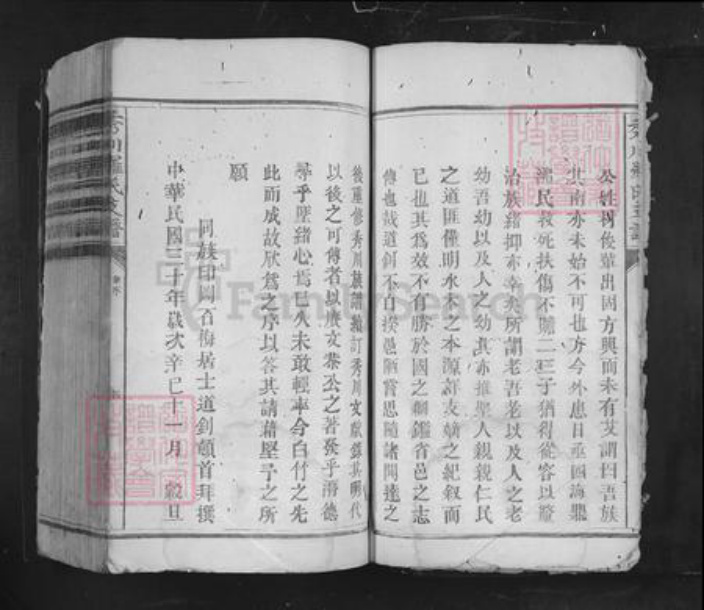 公姓樹後輩出固方興而未有艾謂曰吾族
其南亦未始不可也方今外患日亟四海鼎
沸民救死扶傷不贍二三子猶得從容以證
治族緒抑亦幸矣所謂老吾老以及人之老
幼吾幼以及人之幼其亦推聖人親親仁民
之道匪僅明水木之本源詳支嫡之紀叙而
已也其爲效不有勝於國之 鑑省邑之志
傳也哉道釗不自揆 嘗思隨諸聞達之
後重修秀川族譜 訂秀川文獻錄其明代
以後之可傳者以賡文恭公之著發乎潛德
尋乎墜緒心焉已久未敢輕率今白竹之先
此而成故欣爲之序以答其請藉堅予之所
願
同族印岡石梅居士道釗頓首拜撰
中華民國三十年歲次辛巳十一月 穀旦
秀川羅氏支譜
FamilySearch